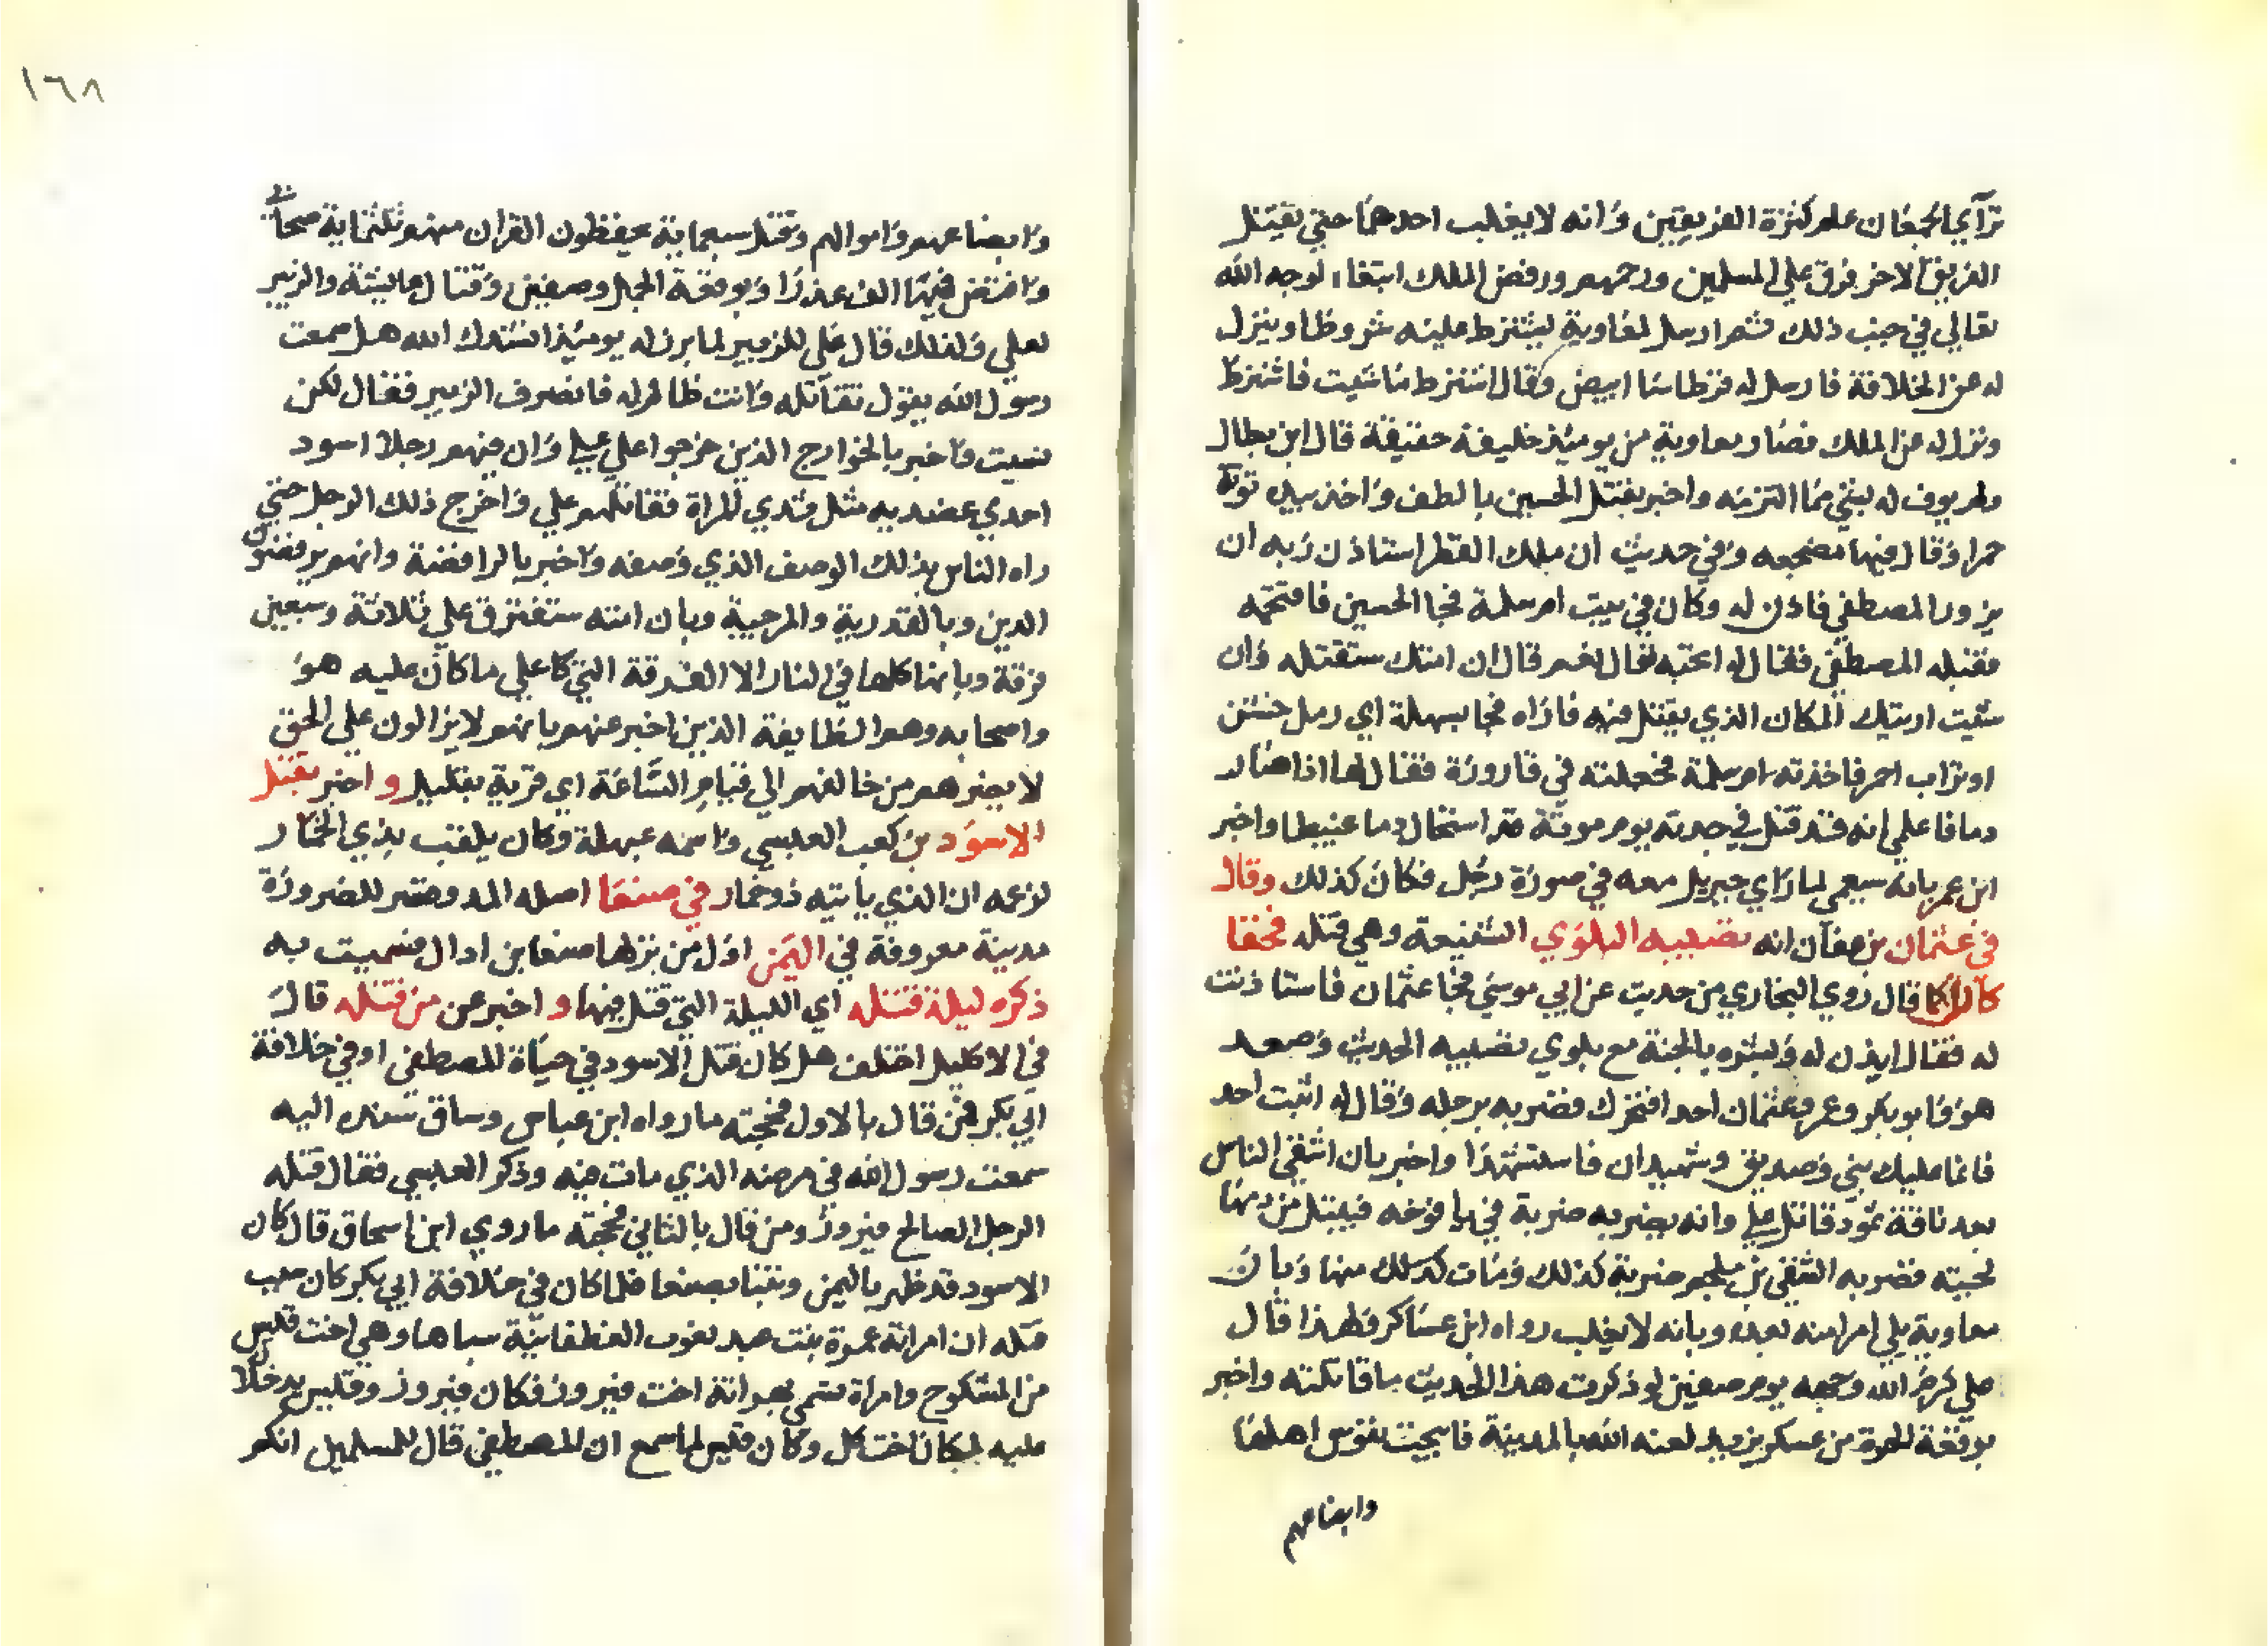 ترآي الجمعان علم كثرة الفريقين وانه لا يغلب احدهما حتي يقتل
الفريق الاخر فرق علي المسلمين ورحمهم ورفض الملك ابتغاء لوجه الله
تعالي في جنب ذلك ثم ارسل لمعاوية ليشترط عليه شروطا وينزل
له عن الخلافة فارسل له قرطاسا ابيض وقال اشترط ما شيت فاشترط
ونزل له عن الملك فصار معاوية من يومئذ خليفة حقيقة قال ابن بطال
ولم يوف له بشي مما التزمه واخبر بقتل الحسين بالطف واخذ بيده تربة
حمرا وقال فيها مضجعه وفي حديث ان ملك القطر استاذن ربه ان
يزور المصطفي فاذن له وكان في بيت ام سلمة فجا الحسين فاقتحم
فقبله المصطفي فقال له اتحبه فقال نعم قال ان امتك ستقتله وان
شيت اريتك المكان الذي يقتل فيه فاراه فجا بسهلة اي رمل خشن
او تراب احمر فاخذته ام سلمة فجعلته في قارورة فقال لها اذا صار
دما فاعلمي انه قد قتل في جدته يوم موته قد استحال دما عبيطا واخبر
ابن عمر بانه سيعمي لما راي جبريل معه في صورة رجل فكان كذلك وقال
في عثمان بن عفان انه تصيبه البلوي الشنيعة وهي قتله فحقا
كان كما قال روي البخاري من حديث عن ابي موسي فجا عثمان فاستاذنت
له فقال ايذن له وبشره بالجنة مع بلوي تصيبه الحديث وصعد
هو وابو بكر وعمر وعثمان احد افتحرك فضربه برجله وقال له اثبت احد
فانما عليك نبي وصديق وشهيدان فاستشهدا واخبر بان اشقي الناس
بعد ناقة ثمود قاتل علي وانه يضربه ضربة في يافوخه فيبتل من دمها
لحيته فضربه الشقي بن ملجم ضربة كذلك ومات كذلك منها وبان
معاوية يلي امر امته بعده وبانه لا يغلب رواه ابن عساكر ولهذا قال
علي كرم الله وجهه يوم صفين لو ذكرت هذا الحديث ما قاتلته واخبر
بوقعة الحرة من عسكر يزيد لعنه الله بالمدينة فابيحت نفوس اهلها
وابضاعهم
١٦٨
وابضاعهم واموالهم وقتل سبعماية يحفظون القران منهم ثلثماية صحابي
وافتض فيها الف عذرا وبوقعة الجمل وصفين وقتال عايشة والزبير
لعلي ولذلك قال علي للزبير لما برز له يوميذ انشدك الله هل سمعت
رسول الله يقول تقاتله وانت ظالم له فانصرف الزبير فقال لكن
نسيت واخبر بالخوارج الذين خرجوا علي علي وان فيهم رجلا اسود
احدي عضديه مثل ثدي المراة فقاتلهم علي واخرج ذلك الرجل حتي
راه الناس بذلك الوصف الذي وصفه واخبر بالرافضة وانهم يرفضون
الدين وبالقدرية والمرجية وبان امته ستفترق علي ثلاثة وسبعين
فرقة وبانها كلها في النار الا الفرقة التي كا علي ما كان عليه هو
واصحابه وهم الطايفة الذين اخبر عنهم بانهم لا يزالون علي الحق
لا يضرهم من خالفهم الي قيام الساعة اي قربه بقليل واخبر بقتل
الاسود بن كعب العنسي واسمه عبهلة وكان يلقب بذي الخمار
لزعمه ان الذي ياتيه ذو خمار في صنعا اصله المد وقصر للضرورة
مدينة معروفة في اليمن اول من نزلها صنعا بن ادال فسميت به
ذكره ليلة قتله اي الليلة التي قتل فيها واخبر عن من قتله قال
في الاكليل اختلف هل كان قتل الاسود في حياة المصطفي او في خلافة
ابي بكر فمن قال بالاول فحجته ما رواه ابن عباس وساق سنده اليه
سمعت رسول الله في مرضه الذي مات فيه وذكر العنسي فقال قتله
الرجل الصالح فيروز ومن قال بالثاني فحجته ما روي ابن اسحاق قال كان
الاسود قد ظهر باليمن وتنبا بصنعا فلما كان في خلافة ابي بكر كان سبب
قتله ان امراته عمرة بنت عبد يغوث الغطفانية سباها وهي اخت قيس
بن المكشوح وامراة تسمي بهرانة اخت فيروز فكان فيروز وقيس يدخلان
عليه لمكان اخت كل وكان قيس لما سمع ان المصطفي قال للمسلمين انكم